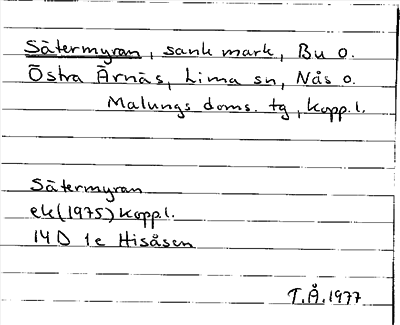 Sätermyran, sank mark, Bu o.
Östra Ärnäs, Lima sn, Nås o.
Malungs doms. tg, Kopp. l.
Sätermyran
ek (1975) Kopp l.
14D 1e Hisåsen
T.Å. 1977